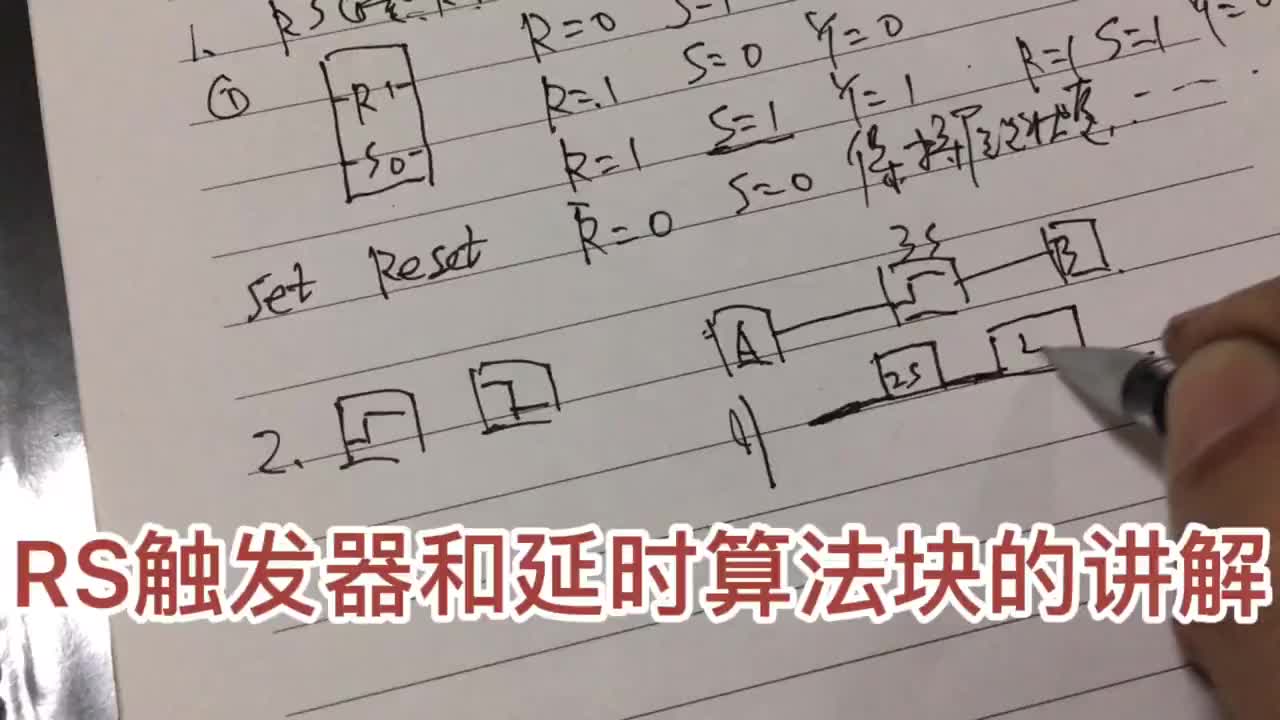 1. RS
R=0 S=1
① R 1 R=1 S=0 Y=0 R=1 S=1 Y=0
S 0 R=1 S=1 Y=1
Set Reset R=0 S=0 保持原状态......
3S
A B
2S 2
2. 1)
RS触发器和延时算法块的讲解